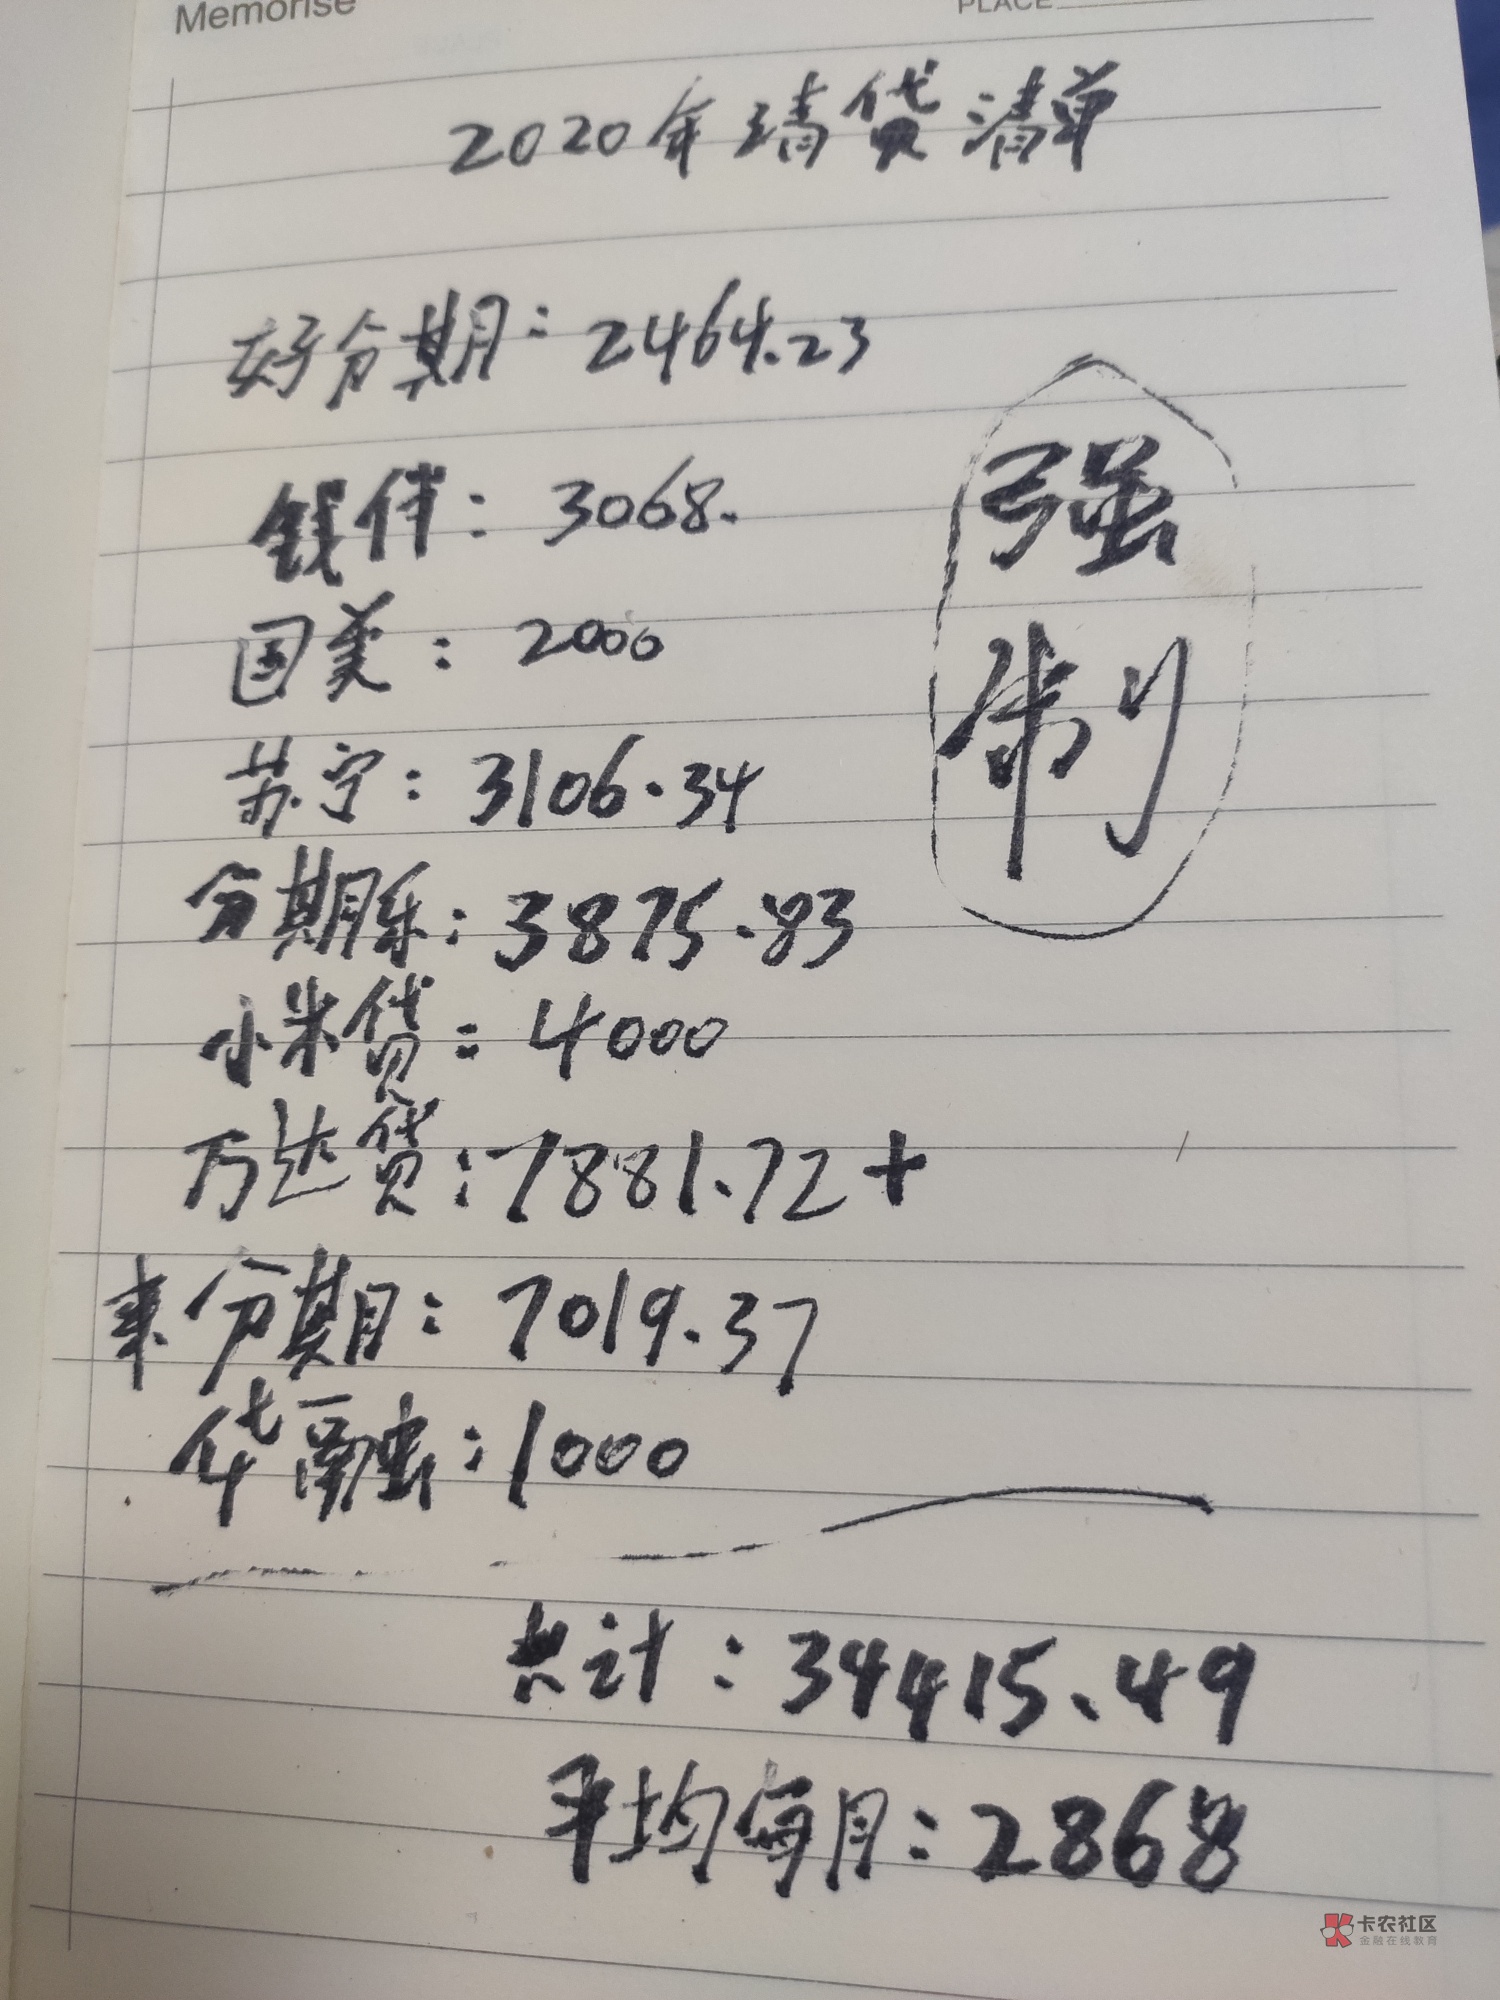 Memorise
PLACE
2020年清贷清单
好分期：2464.23
钱伴：3068.
国美：2000
苏宁：3106.34
分期乐：3875.83
小米贷：4000
万达贷：7881.72+
来分期：7019.37
华融：1000
强
制
共计：34415.49
平均每月：2868
卡农社区
金融在线教育